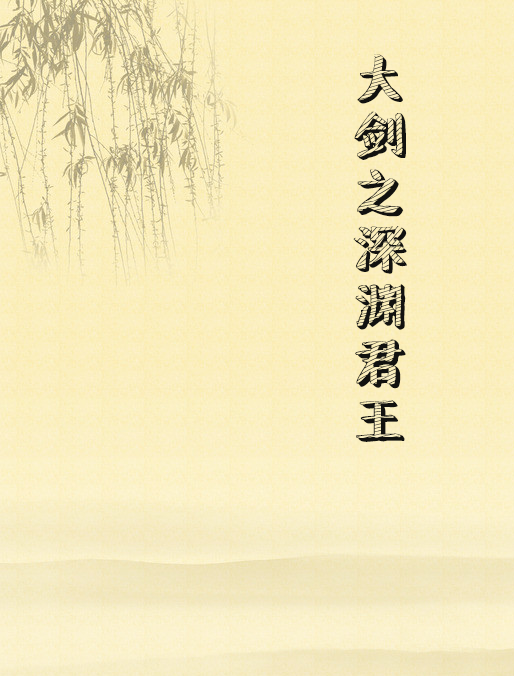 大剑之深渊君王